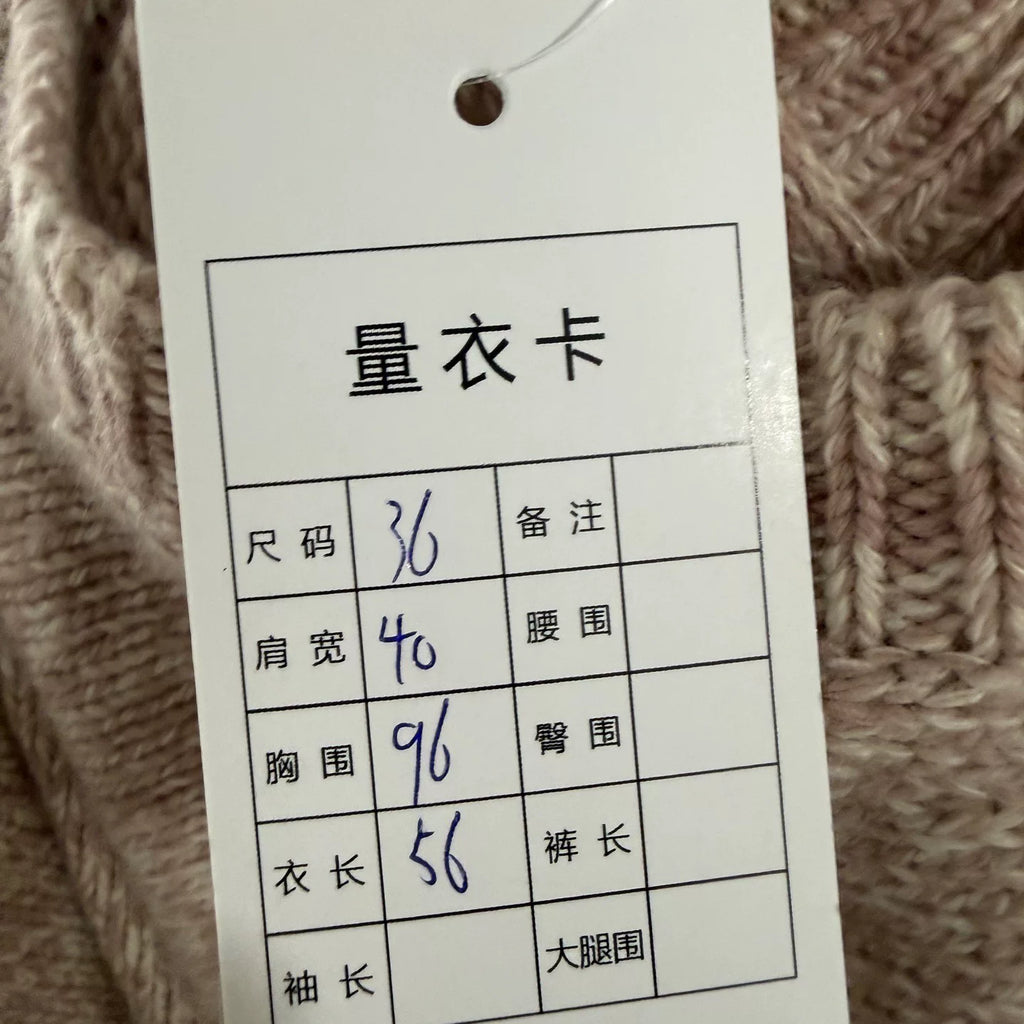 量衣卡
尺码 36 备注
肩宽 40 腰围
胸围 96 臀围
衣长 56 裤长
袖长 大腿围